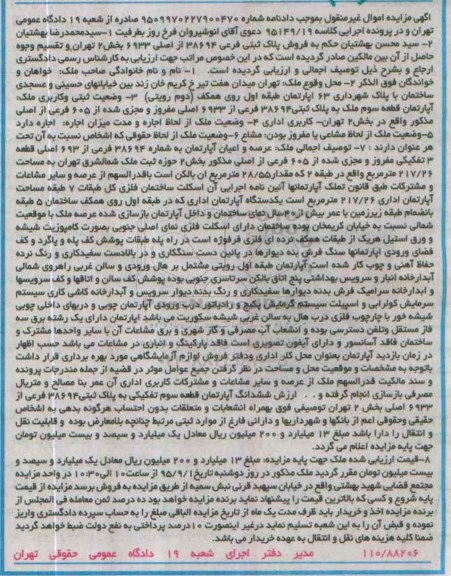 آگهی مزایده اموال غیرمنقول بموجب دادنامه شماره ۹۵۰۹۹۷۰۲۲۷۹۰۰۴۷۰ صادره از شعبه ۱۹ دادگاه عمومی
تهران و در پرونده اجرایی کلاسه ۹۵۱۴۹/۱۹ دعوی آقای انوشیروان فرخ روز بطرفیت ۱-سیدمحمدرضا بهشتیان
۲- سید محسن بهشتیان حکم به فروش پلاک ثبتی فرعی ۳۸۶۹۴ از اصلی ۶۹۳۳ بخش۲ تهران و تقسیم وجوه
حاصل از آن بین مالکین صادر گردیده است که در این خصوص مراتب جهت ارزیابی به کارشناس رسمی دادگستری
ارجاع و بشرح ذیل توصیف اجمالی و ارزیابی گردیده است. ۱- نام و نام خانوادگی صاحب ملک: خواهان و
خواندگان فوق الذکر ۲- محل وقوع ملک: تهران میدان هفت تیر خ کریم خان زند بین خیابانهای حسینی و عسجدی
ساختمان با پلاک شهرداری ۶۳ آپارتمان طبقه اول روی همکف (دوم رویتی) ۳- وضعیت ثبتی و کاربری ملک:
آپارتمان قطعه سوم ملک به پلاک ثبتی ۳۸۶۹۴ فرعی از ۶۹۳۳ اصلی مفروز و مجزی شده از ۶۰۵ فرعی از اصلی
مذکور واقع در بخش۲ تهران- کاربری اداری ۴- وضعیت ملک از لحاظ اجاره و مدت میزان اجاره: اجاره دارد
۵-وضعیت ملک از لحاظ مشاعی یا مفروز بودن: مشاع ۶-وضعیت ملک از لحاظ حقوقی که اشخاص نسبت به آن تحت
هر عنوان دارند : ۷- توصیف اجمالی ملک: عرصه و اعیان آپارتمان به شماره ۳۸۶۹۴ فرعی از ۶۹۳ اصلی قطعه
۳ تفکیکی مفروز و مجزی شده از ۶۰۵ فرعی از اصلی مذکور بخش۲ حوزه ثبت ملک شمالشرق تهران به مساحت
۲۱۷/۲۶ مترمربع واقع در طبقه ۲ که مقدار ۲۸/۵۵ مترمربع ان بالکن است باقدرالسهم از عرصه و سایر مشاعات
و مشترکات طبق قانون تملک آپارتمانها آئین نامه اجرایی آن اسکلت ساختمان فلزی کل طبقات ۷ طبقه مساحت
آپارتمان اداری ۲۱۷/۲۶ مترمربع است یکدستگاه آپارتمان اداری که در طبقه اول روی همکف ساختمان ۵ طبقه
بانضمام طبقه زیرزمین با عمر بیش از ۴۰سال نمای ساختمان و داخل آپارتمان بازسازی شده عرصه ملک با موقعیت
شمالی نسبت به خیابان کریمخان بوده ساختمان دارای اسکلت فلزی نمای اصلی جنوبی بصورت کامپوزیت شیشه
و ورق استیل هریک از طبقات همکف نرده ای فلزی فرفوژه است در راه پله طبقات پوشش کف پله و پاگرد و کف
فضای ورودی اپارتمانها سنگ فرش بنه دیوارها در پائین دست سنگکاری و در بالادست سفیدکاری و رنگ نرده
حفاظ آهنی و چوب کار شده است آپارتمان طبقه اول رویتی مشتمل بر هال ورودی و سالن غربی راهروی شمالی
آبدارخانه انبار و سرویس بهداشتی پنج اتاق بالکن سرتاسری جنوبی بوده پوشش کف سالن و اتاقها و کف سرویسها
و ابدارخانه سرامیک فرش بدنه دیوارها سفیدکاری و رنگ بدنه دیوار سرویس و آبدارخانه کاشی کاری سیستم
سرمایش کولرابی و اسپیلت سیستم گرمایش پکیج و رادیاتور درب ورودی آپارتمان چوبی و دربهای داخلی چوبی
شیشه خور با چارچوب فلزی درب هال به سالن غربی شیشه سکوریت می باشد اپارتمان دارای یک رشته برق سه
فاز مستقل وتلفن دسترسی بوده و انشعاب آب مصرفی و گاز شهری و برق مشاعات آن با سایر واحدها مشترک و
ساختمان فاقد آسانسور و دارای آیفون تصویری است فاقد پارکینگ و انباری در مشاعات می باشد حسب اظهار
در زمان بازدید آپارتمان بعنوان محل کار اداری ودفتر فروش لوازم آزمایشگاهی مورد بهره برداری قرار داشت
باتوجه به مشخصات و موقعیت محل و مساحت در نظر گرفتن جمیع عوامل موثر در قضیه از جمله مندرجات پرونده
و سند مالکیت قدرالسهم ملک از عرصه و سایر مشاعات و مشترکات کاربری اداری آن عمر بنا مصالح و متریال
مصرفی بازسازی انجام گرفته و . . ارزش ششدانگ آپارتمان قطعه سوم تفکیکی به پلاک ثبتی ۳۸۶۹۴ فرعی از
۶۹۳۳ اصلی بخش ۲ تهران توصیفی فوق بهمراه انشعابات و متعلقات بدون احتساب هرگونه بدهی به اشخاص
حقیقی وحقوقی اعم از بانکها و شهرداریها و دارائی فارغ از موارد ثبتی مرتبط چنانچه بلامعارض بوده و قابلیت نقل
و انتقال را دارا باشد مبلغ ۱۳ میلیارد و ۲۰۰ میلیون ریال معادل یک میلیارد و سیصد و بیست میلیون تومان
جهت پایه مزایده اعلام می گردد.
۸-قیمت ارزیابی شده ملک جهت پایه مزایده: مبلغ ۱۳ میلیارد و ۲۰۰ میلیون ریال معادل یک میلیارد و سیصد و
بیست میلیون تومان مقرر گردید ملک مذکور در روز دوشنبه تاریخ ۹۵/۹/۱ از ساعت ۱۰ الی ۱۰:۳۰ در واحد مزایده
مجتمع قضایی شهید بهشتی واقع در خیابان سپهبد قرنی نبش سمیه از طریق مزایده به فروش برسد مزایده از قیمت
پایه شروع و کسی که بالاترین قیمت را پیشنهاد نماید برنده مزایده خواهد بود ده درصد ثمن معامله فی المجلس از
برنده مزایده اخذ و خریدار باید ظرف مدت یک ماه از تاریخ مزایده الباقی مبلغ را به حساب سپرده دادگستری واریز
نموده و قبض آن را به این شعبه تسلیم نماید درغیر اینصورت ۱۰درصد پرداختی به نفع دولت ضبط خواهد گردید
ضمنا کلیه هزینه های نقل و انتقال به عهده خریدار می باشد.
۱۱۰/۸۸۲۰۶ مدیر دفتر اجرای شعبه ۱۹ دادگاه عمومی حقوقی تهران